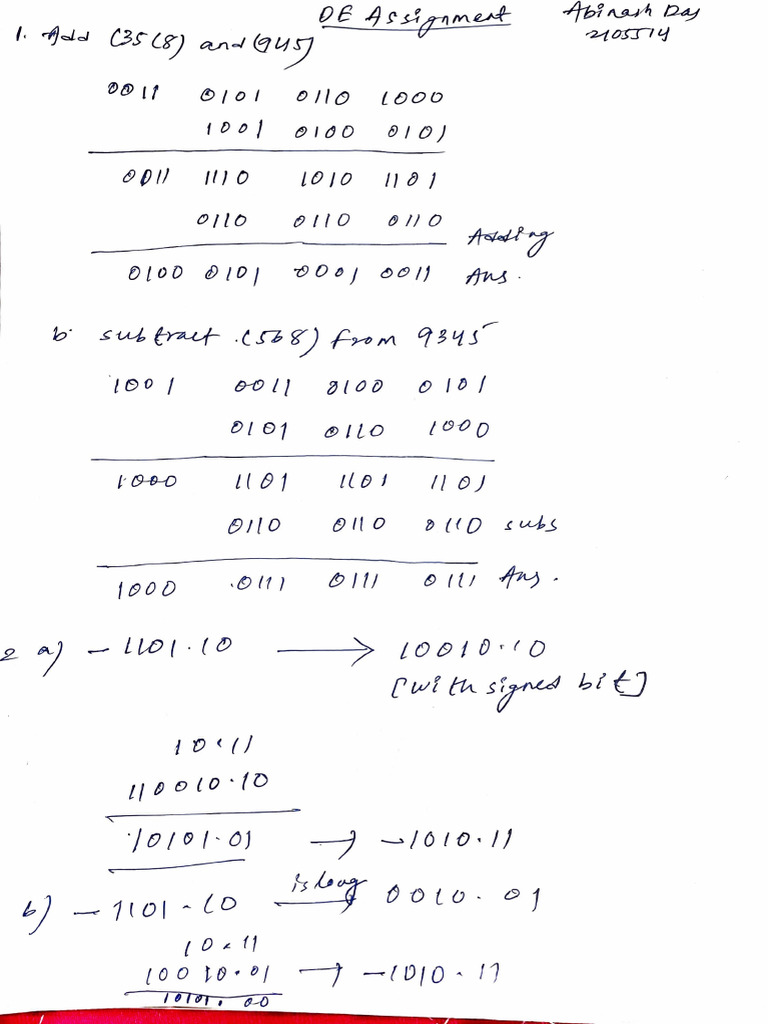 DE Assignment
Abinash Das
2105514
1. Add (3568) and (945)
0011 0101 0110 1000
1001 0100 0101
0011 1110 1010 1101
0110 0110 0110
Adding
0100 0101 0001 0011 Ans.
b. subtract (568) from 9345
1001 0011 0100 0101
0101 0110 1000
1000 1101 1101 1101
0110 0110 0110 subs
1000 .0111 0111 0111 Ans.
2 a) - 1101.10 → 10010.10
[with signed bit]
10.11
110010.10
10101.01 → -1010.11
b) - 1101.10 → 0010.01
10.11
10010.01 → -1010.11
10101.00